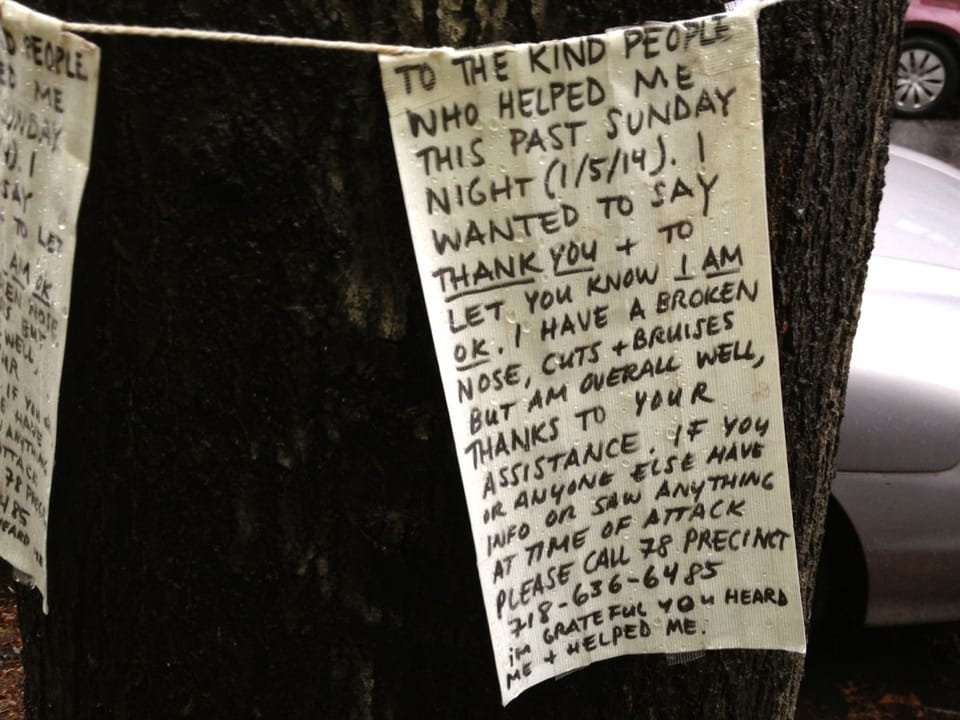 D PEOPLE
ED ME
UNDAY
). I
SAY
TO LET
AM OK.
EN NOSE
S BUT
WELL,
UR
IF YOU
E HAVE
ANYTHING
TTACK
78 PREC
485
HEARD
TO THE KIND PEOPLE
WHO HELPED ME
THIS PAST SUNDAY
NIGHT (1/5/14). I
WANTED TO SAY
THANK YOU + TO
LET YOU KNOW I AM
OK. I HAVE A BROKEN
NOSE, CUTS + BRUISES
BUT AM OVERALL WELL,
THANKS TO YOUR
ASSISTANCE. IF YOU
OR ANYONE ELSE HAVE
INFO OR SAW ANYTHING
AT TIME OF ATTACK
PLEASE CALL 78 PRECINCT
718-636-6485
IM GRATEFUL YOU HEARD
ME + HELPED ME.